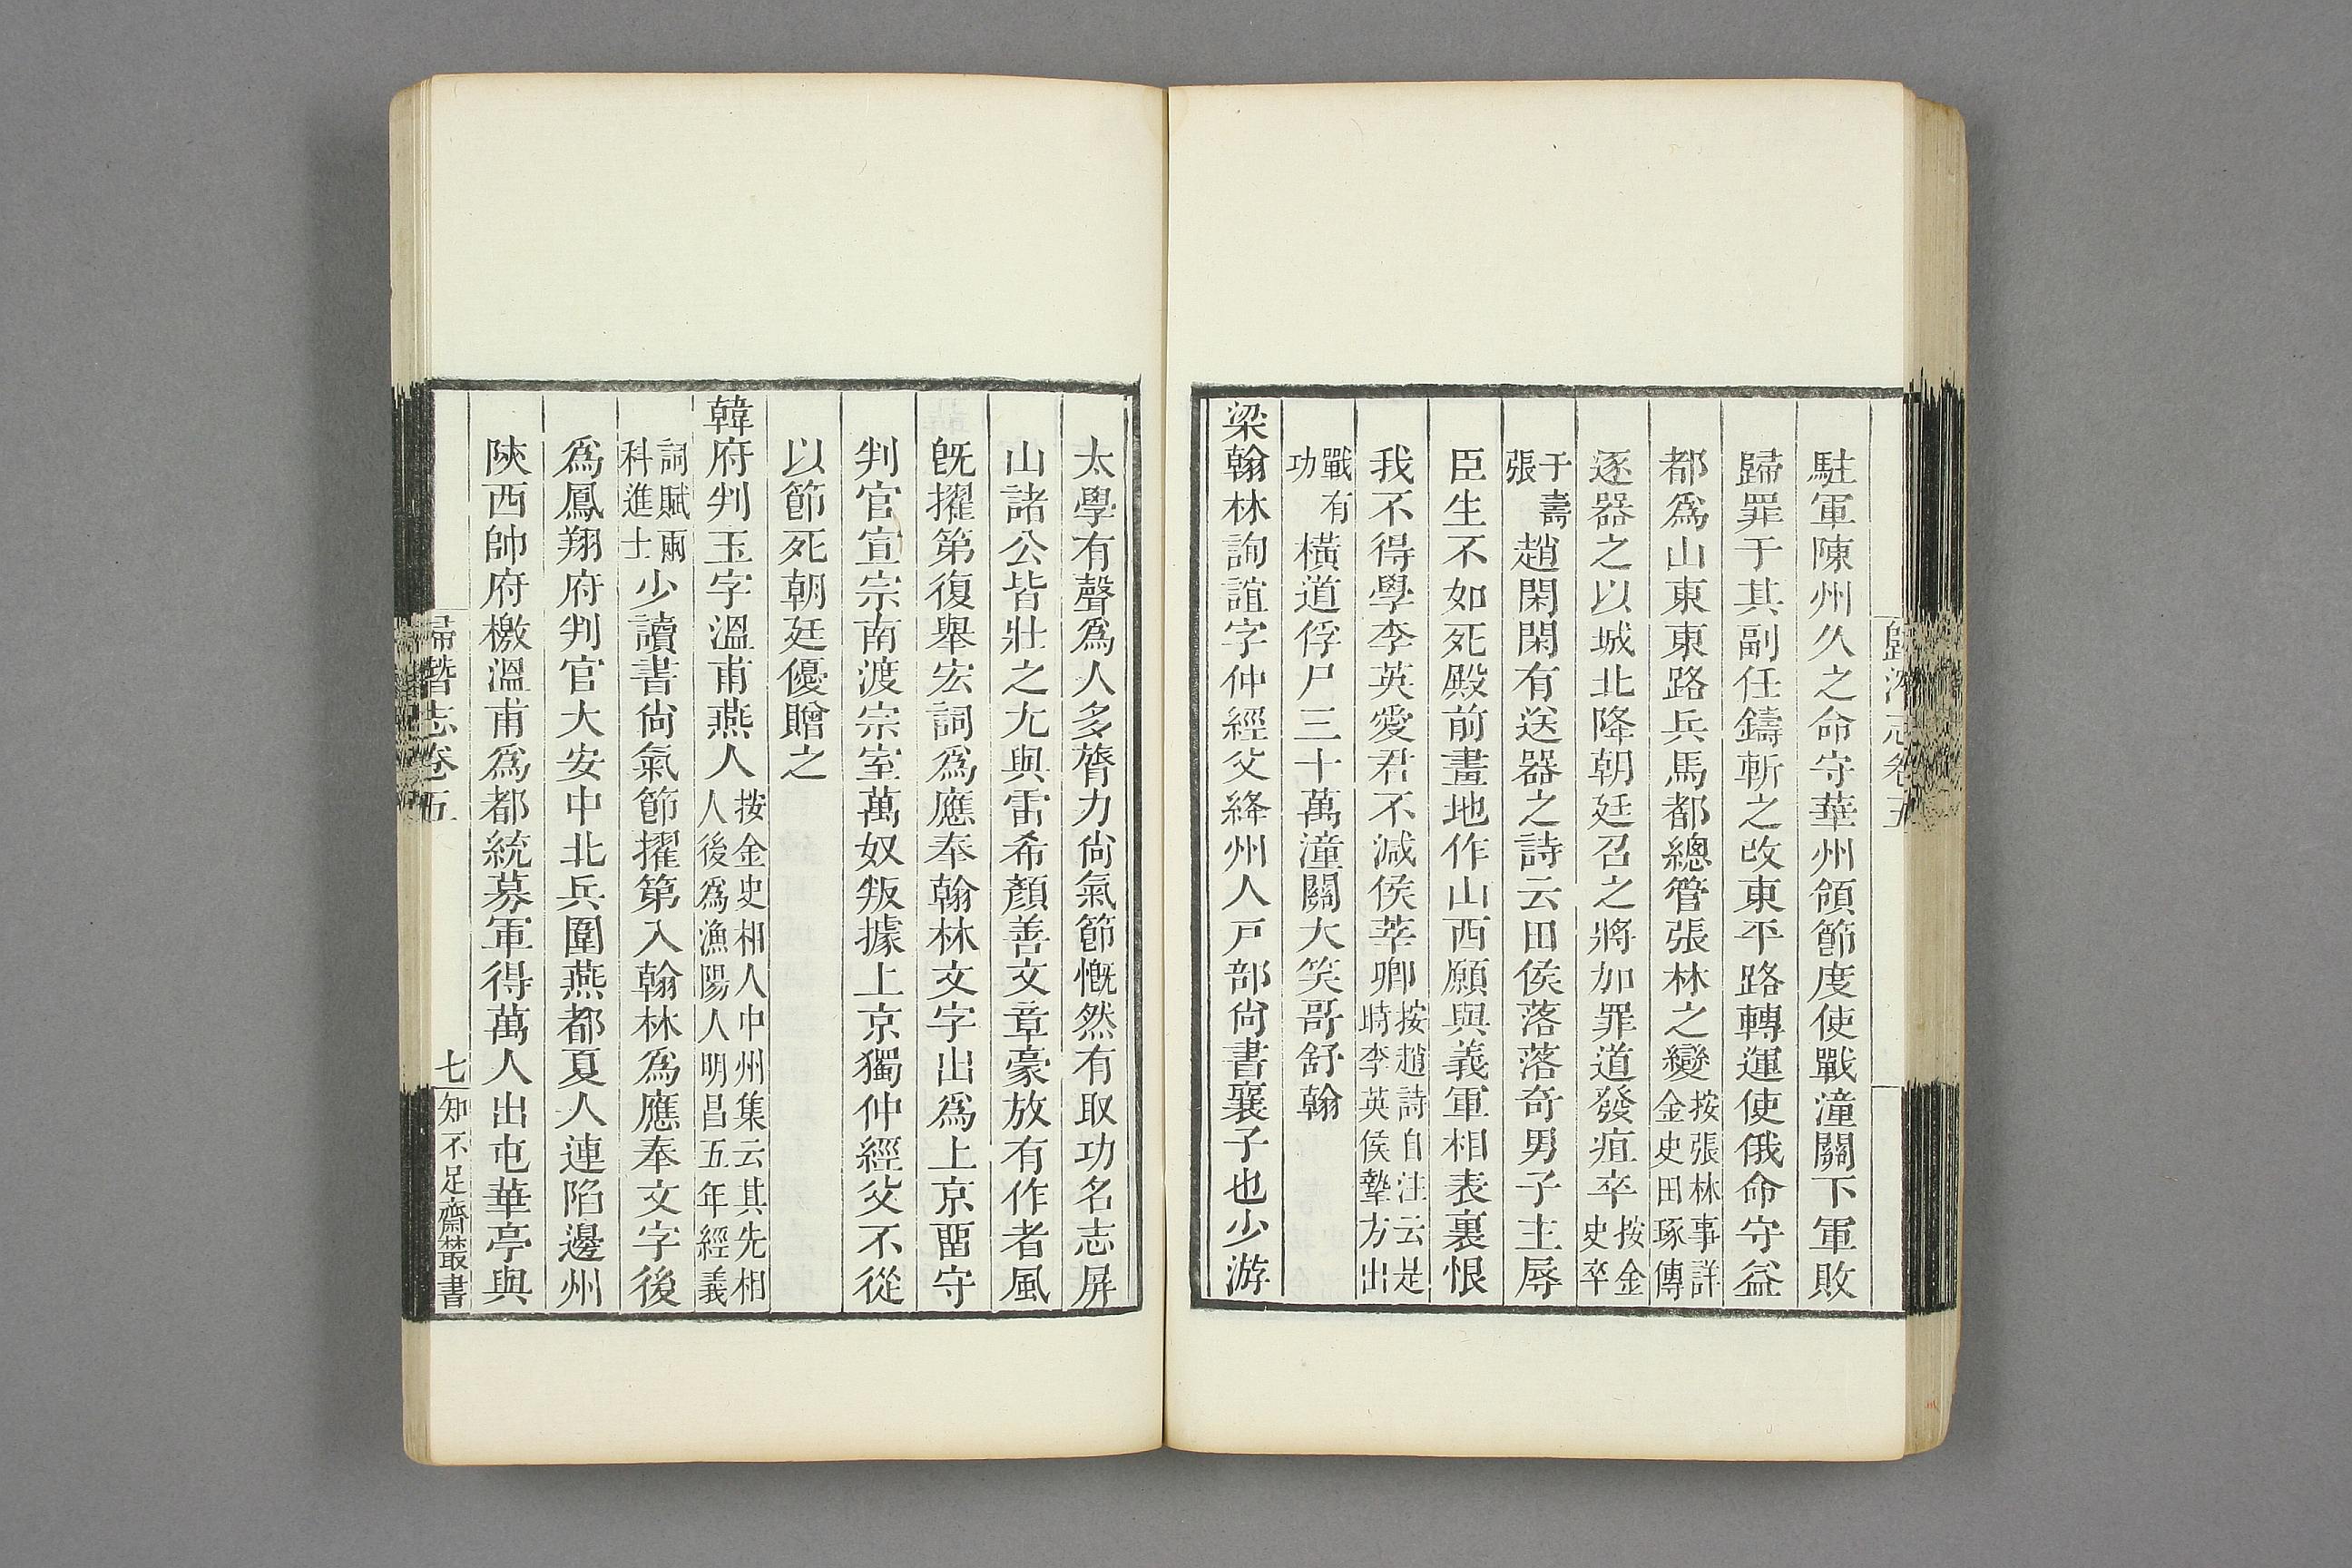 歸潛志卷五
駐軍陳州久之命守華州領節度使戰潼關下軍敗
歸罪于其副任鑄斬之改東平路轉運使俄命守益
都爲山東東路兵馬都總管張林之變按張林事詳金史田琢傳
逐器之以城北降朝廷召之將加罪道發疽卒按金史卒
于壽張趙閑閑有送器之詩云田侯落落奇男子主辱
臣生不如死殿前畫地作山西願與義軍相表裏恨
我不得學李英愛君不減侯莘卿按趙詩自注云是時李英侯摯方出
戰有功橫道俘尸三十萬潼關大笑哥舒翰
梁翰林詢誼字仲經父絳州人戸部尙書襄子也少游
太學有聲爲人多膂力尙氣節慨然有取功名志屏
山諸公皆壯之尤與雷希顏善文章豪放有作者風
旣擢第復舉宏詞爲應奉翰林文字出爲上京畱守
判官宣宗南渡宗室萬奴叛據上京獨仲經父不從
以節死朝廷優贈之
韓府判玉字溫甫燕人按金史相人中州集云其先相人後爲漁陽人明昌五年經義
詞賦兩科進士少讀書尙氣節擢第入翰林爲應奉文字後
爲鳳翔府判官大安中北兵圍燕都夏人連陷邊州
陝西帥府檄溫甫爲都統募軍得萬人出屯華亭與
歸潛志卷五
七
知不足齋叢書